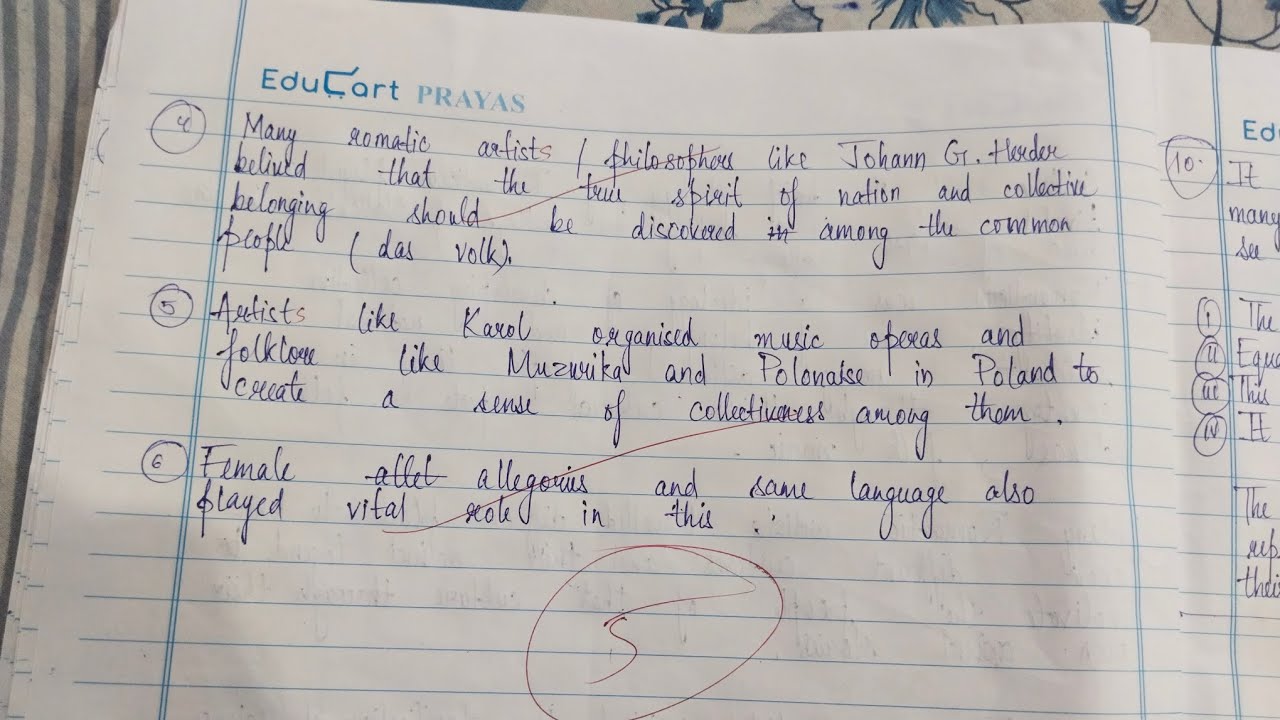 EduCart PRAYAS
4
Many romatic artists / philosophers like Johann G. Herder
belived that the true spirit of nation and collective
belonging should be discovered in among the common
people (das volk).
5
Artists like Karol organised music operas and
folklore like Muzurika and Polonaise in Poland to
create a sense of collectiveness among them.
6
Female allet allegories and same language also
played vital role in this.
5
Ed
10.
It
many
see
i The
ii Equa
iii This
iv It
The
rep
thei